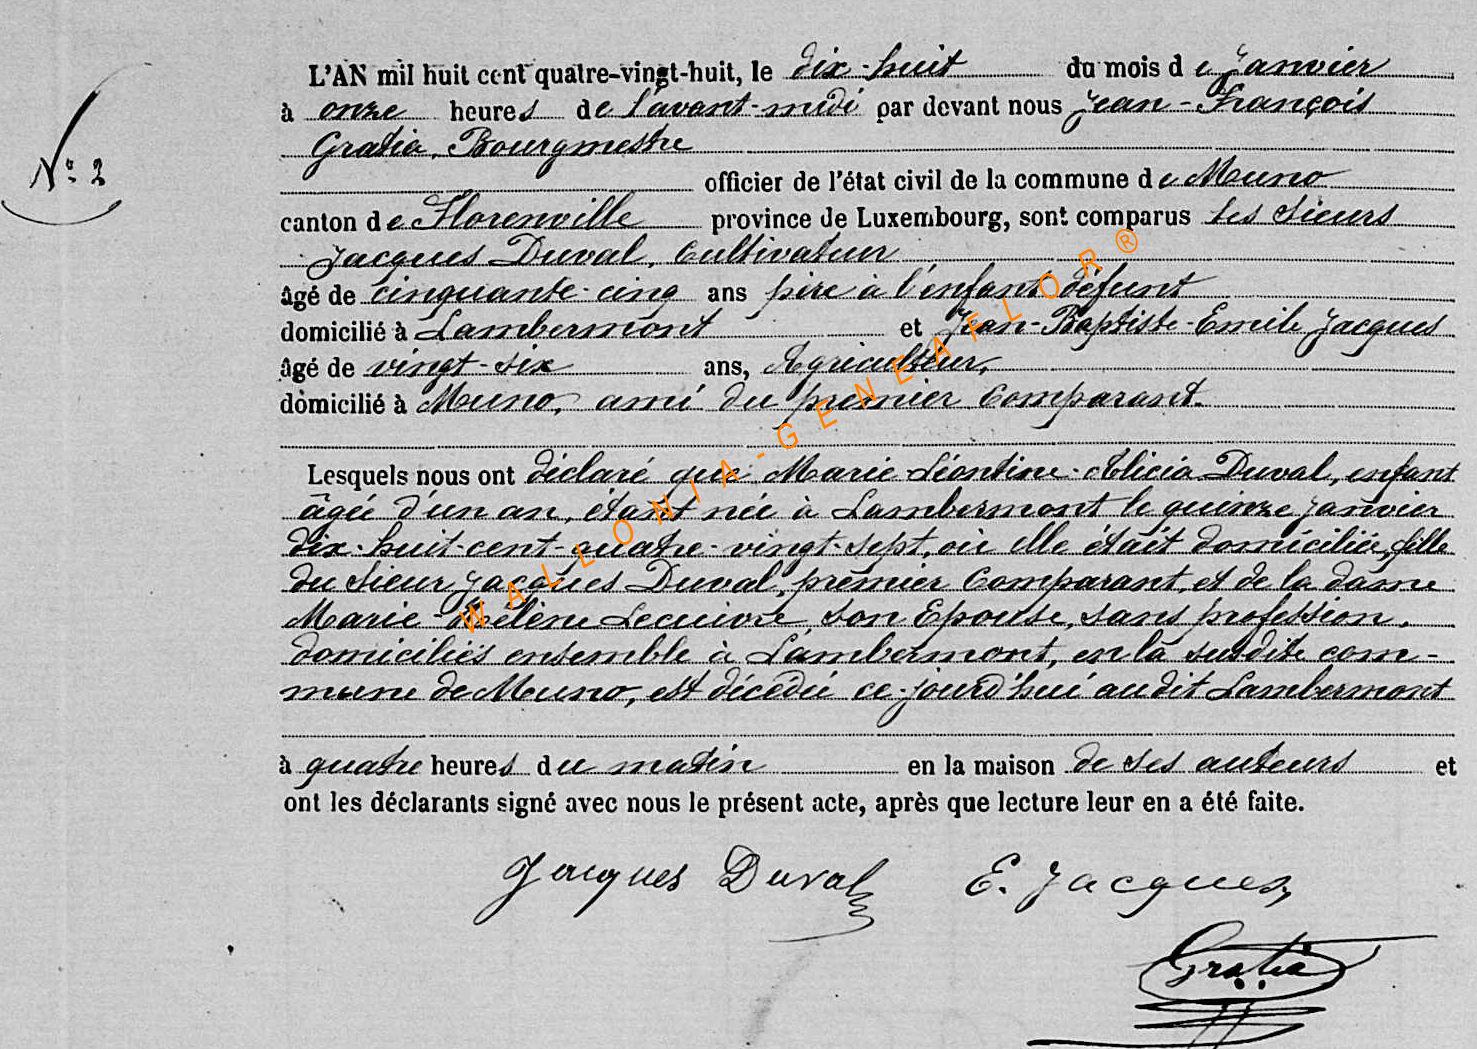 L'AN mil huit cent quatre-vingt-huit, le dix-huit du mois de Janvier
à onze heures de l'avant-midi par devant nous Jean-François
Gratia, Bourgmestre
N° 2
officier de l'état civil de la commune de Muno
canton de Florenville province de Luxembourg, sont comparus les sieurs
Jacques Duval, Cultivateur
âgé de cinquante-cinq ans père à l'enfant défunt
domicilié à Lambermont et Jean-Baptiste-Emile Jacques
âgé de vingt-six ans, Agriculteur,
domicilié à Muno, ami du premier Comparant.
Lesquels nous ont déclaré que Marie-Léontine-Alicia Duval, enfant
âgée d'un an, étant née à Lambermont le quinze janvier
dix-huit-cent-quatre-vingt-sept, où elle était domiciliée, fille
du Sieur Jacques Duval, premier Comparant, et de la dame
Marie-Hélène Lecuivre son Epouse, sans profession,
domiciliés ensemble à Lambermont, en la susdite com-
mune de Muno, est décédée ce-jourd'hui audit Lambermont
à quatre heures du matin en la maison de ses auteurs et
ont les déclarants signé avec nous le présent acte, après que lecture leur en a été faite.
Jacques Duval E. Jacques,
Gratia
WALLONIA-GENEAFLOR®